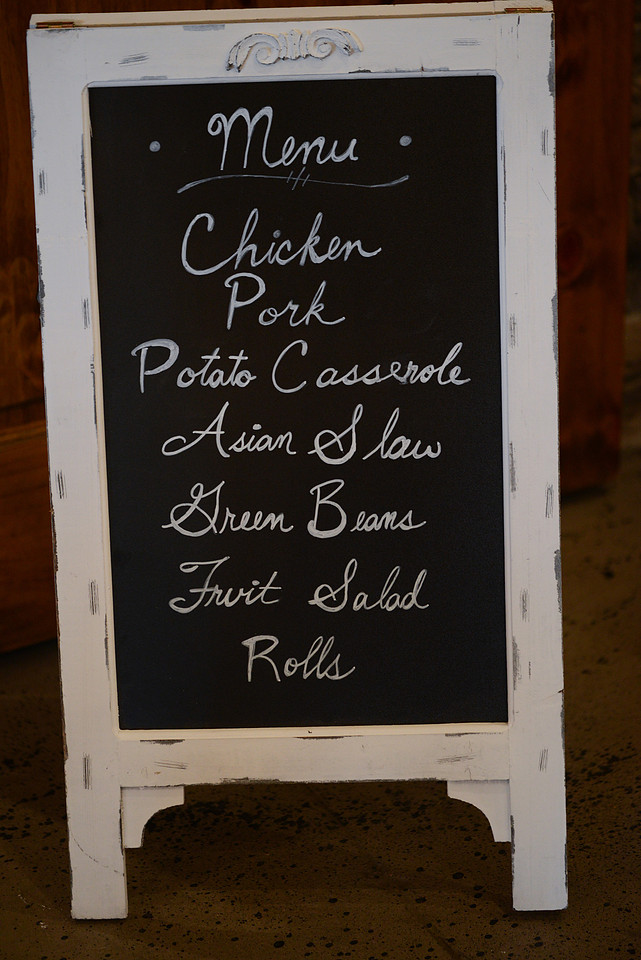 Menu
Chicken
Pork
Potato Casserole
Asian Slaw
Green Beans
Fruit Salad
Rolls